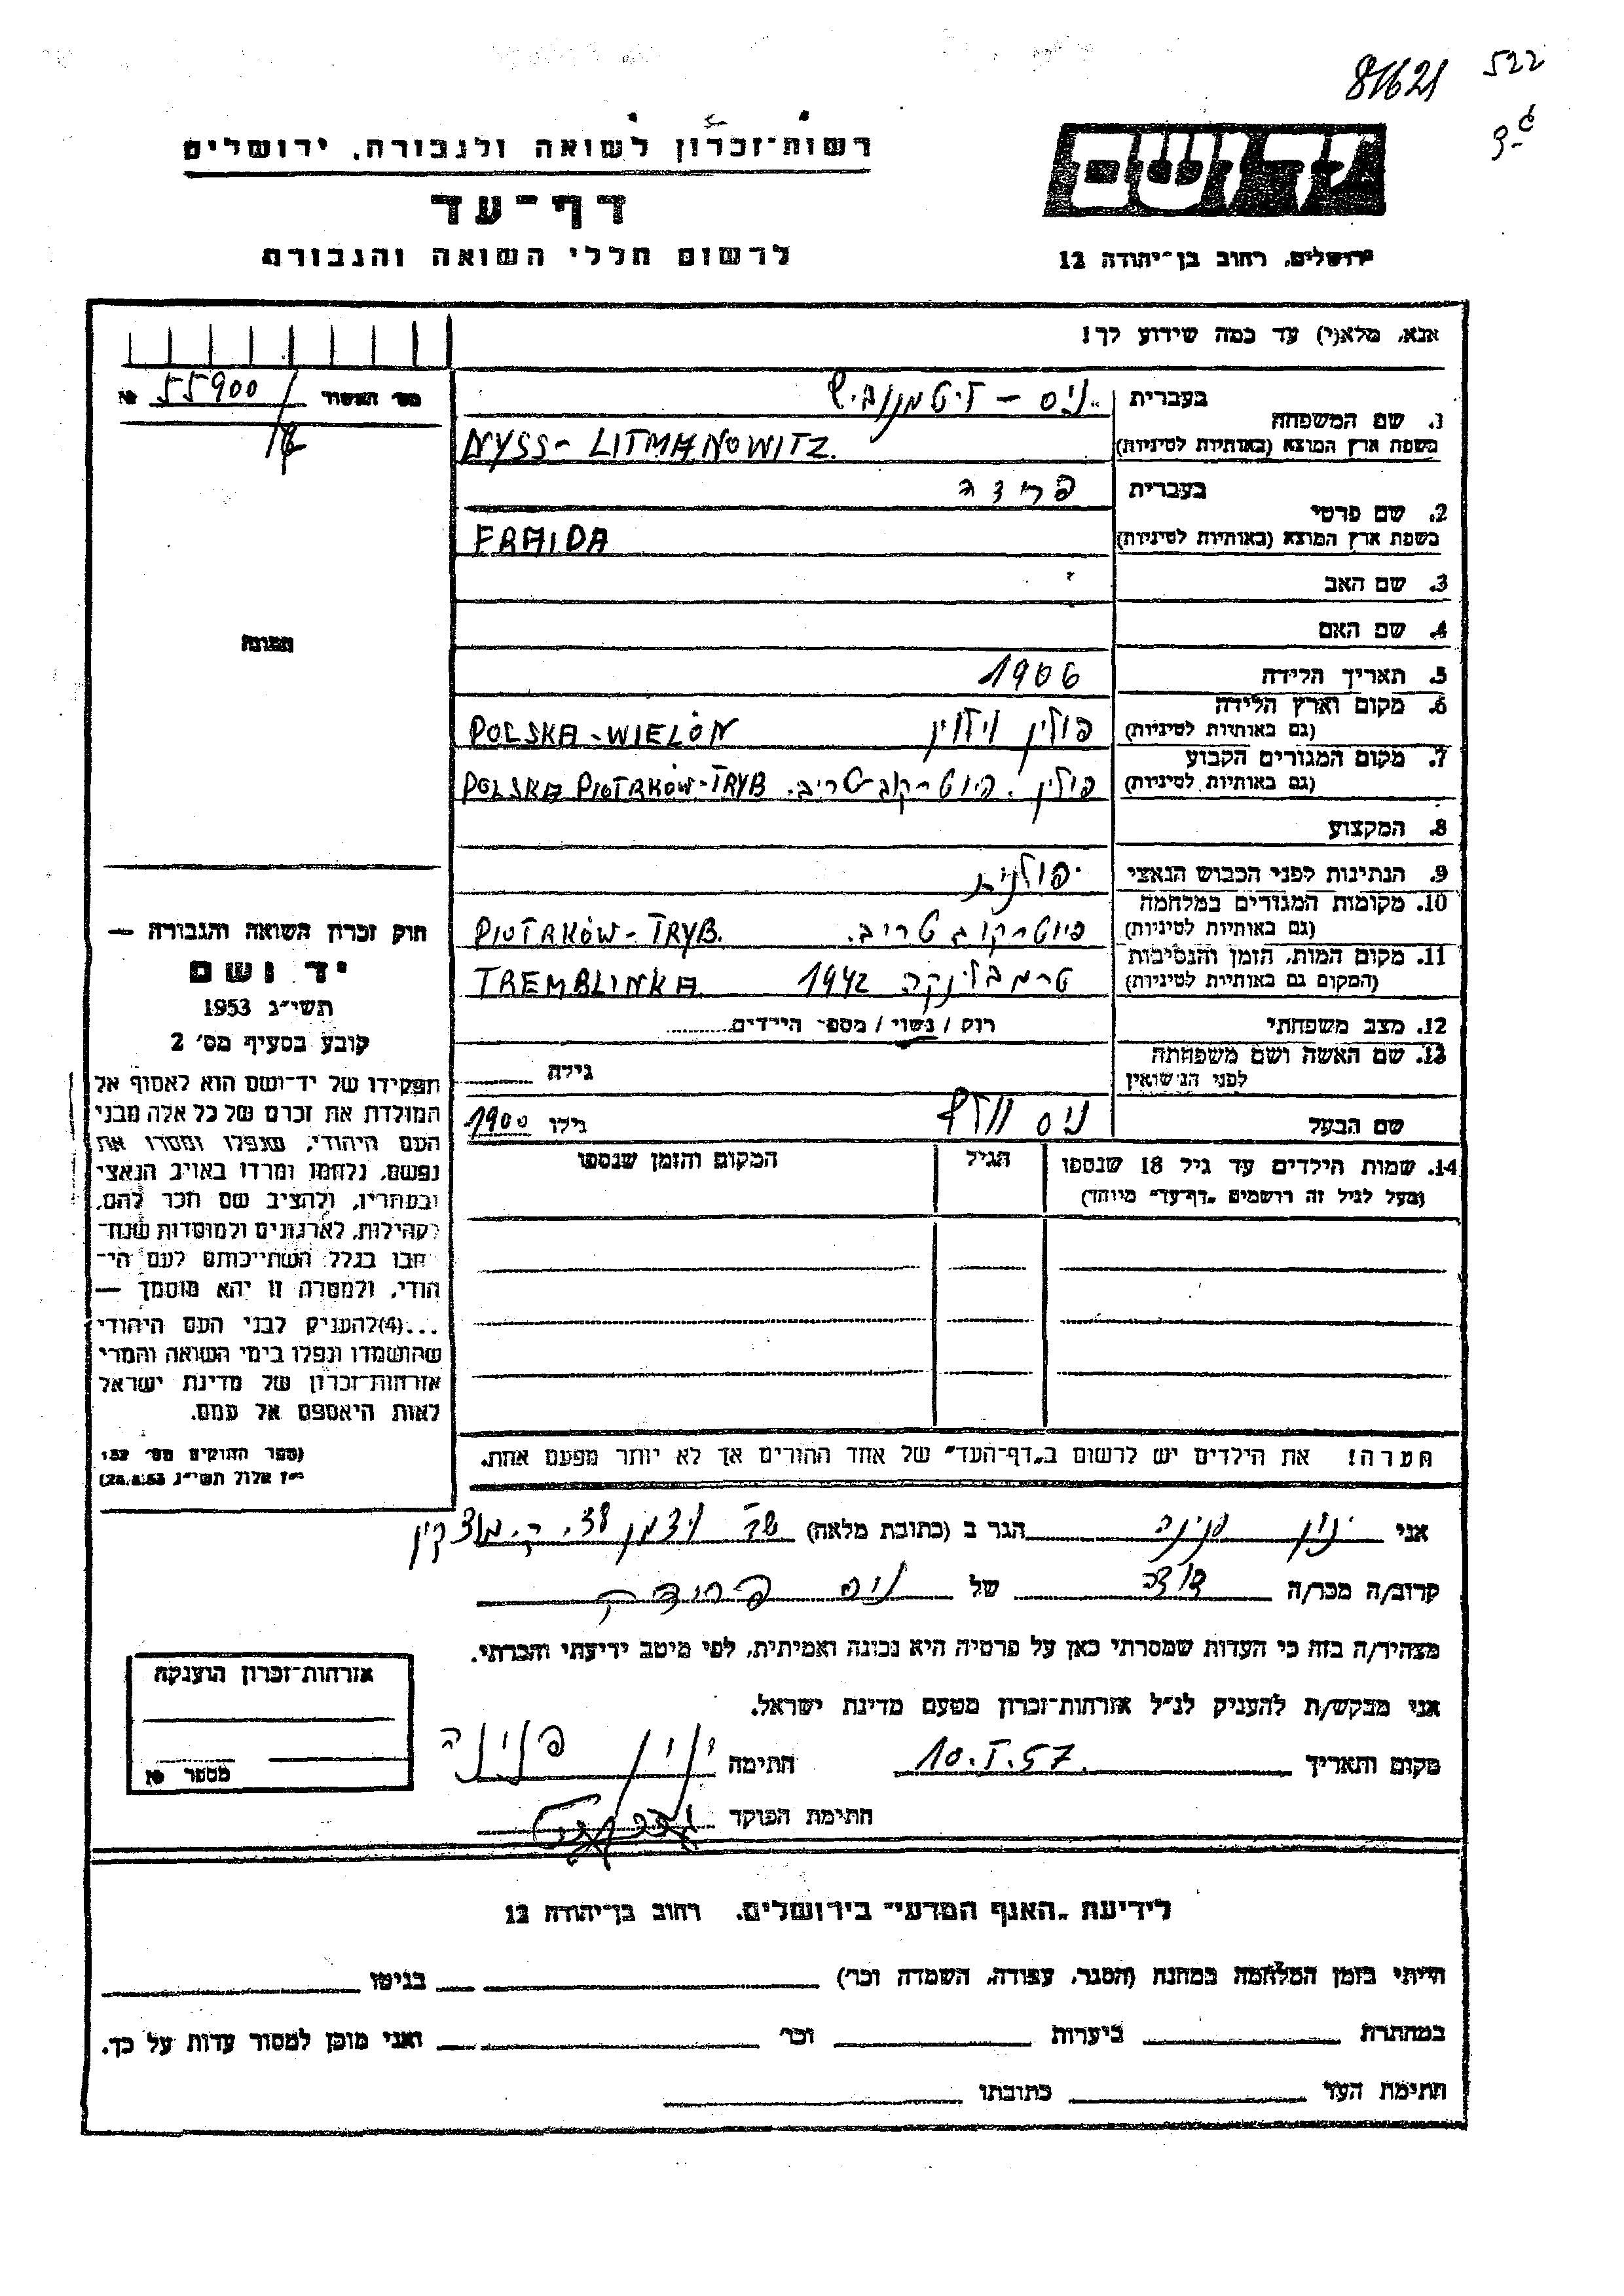 81621 522
רשות־זכרון לשואה ולגבורה, ירושלים
דף־עד
לרשום חללי השואה והגבורה
יד ושם
ירושלים, רחוב בן־יהודה 12
אנא, מלא(י) עד כמה שידוע לך!
מס' האשור 55900 №
1. שם המשפחה
בעברית ניס – ליטמנוביץ
בשפת ארץ המוצא (באותיות לטיניות) NYSS- LITMANOWITZ.
2. שם פרטי
בעברית פרידה
בשפת ארץ המוצא (באותיות לטיניות) FRAIDA
3. שם האב
4. שם האם
5. תאריך הלידה 1906
6. מקום וארץ הלידה
(גם באותיות לטיניות) פולין וילון POLSKA - WIELÓN
7. מקום המגורים הקבוע
(גם באותיות לטיניות) פולין. פיוטרקוב טריב. POLSKA PIOTRKÓW-TRYB
8. המקצוע
9. הנתינות לפני הכבוש הנאצי פולנית
10. מקומות המגורים במלחמה
(גם באותיות לטיניות) פיוטרקוב טריב. PIOTRKÓW-TRYB.
11. מקום המות, הזמן והנסיבות
(המקום גם באותיות לטיניות) טרמבלינקה 1942 TREMBLINKA
12. מצב משפחתי רוק / נשוי / מספר הילדים
13. שם האשה ושם משפחתה
לפני הנישואין גילה
שם הבעל ניס וולף גילו 1900
14. שמות הילדים עד גיל 18 שנספו
(מעל לגיל זה רושמים „דף־עד” מיוחד)
הגיל
המקום והזמן שנספו
הערה! את הילדים יש לרשום ב„דף־העד” של אחד ההורים אך לא יותר מפעם אחת.
תמונה
חוק זכרון השואה והגבורה —
יד ושם
תשי״ג 1953
קובע בסעיף מס' 2
תפקידו של יד־ושם הוא לאסוף אל
המולדת את זכרם של כל אלה מבני
העם היהודי, שנפלו ומסרו את
נפשם, נלחמו ומרדו באויב הנאצי
ובעוזריו, ולהציב שם וזכר להם,
לקהילות, לארגונים ולמוסדות שנח־
רבו בגלל השתייכותם לעם הי־
הודי, ולמטרה זו יהא מוסמך —
...(4)להעניק לבני העם היהודי
שהושמדו ונפלו בימי השואה והמרי
אזרחות־זכרון של מדינת ישראל
לאות היאספם אל עמם.
(ספר החוקים מס' 132
י״ז אלול תשי״ג, 28.8.53)
אני ינין פנינה הגר ב (כתובת מלאה) שד ויצמן ק. מוצקין
קרוב/ה מכר/ה דודה של ניס פרידה
מצהיר/ה בזה כי העדות שמסרתי כאן על פרטיה היא נכונה ואמיתית, לפי מיטב ידיעתי והכרתי.
אני מבקש/ת להעניק לנ״ל אזרחות־זכרון מטעם מדינת ישראל.
מקום ותאריך 10.I.57. חתימה ינין פנינה
חתימת הפוקד
אזרחות־זכרון הוענקה
מספר №
לידיעת „האגף המדעי” בירושלים, רחוב בן־יהודה 12
הייתי בזמן המלחמה במחנה (הסגר, עבודה, השמדה וכו') בגיטו
במחתרת ביערות וכו' ואני מוכן למסור עדות על כך.
חתימת העד כתובתו